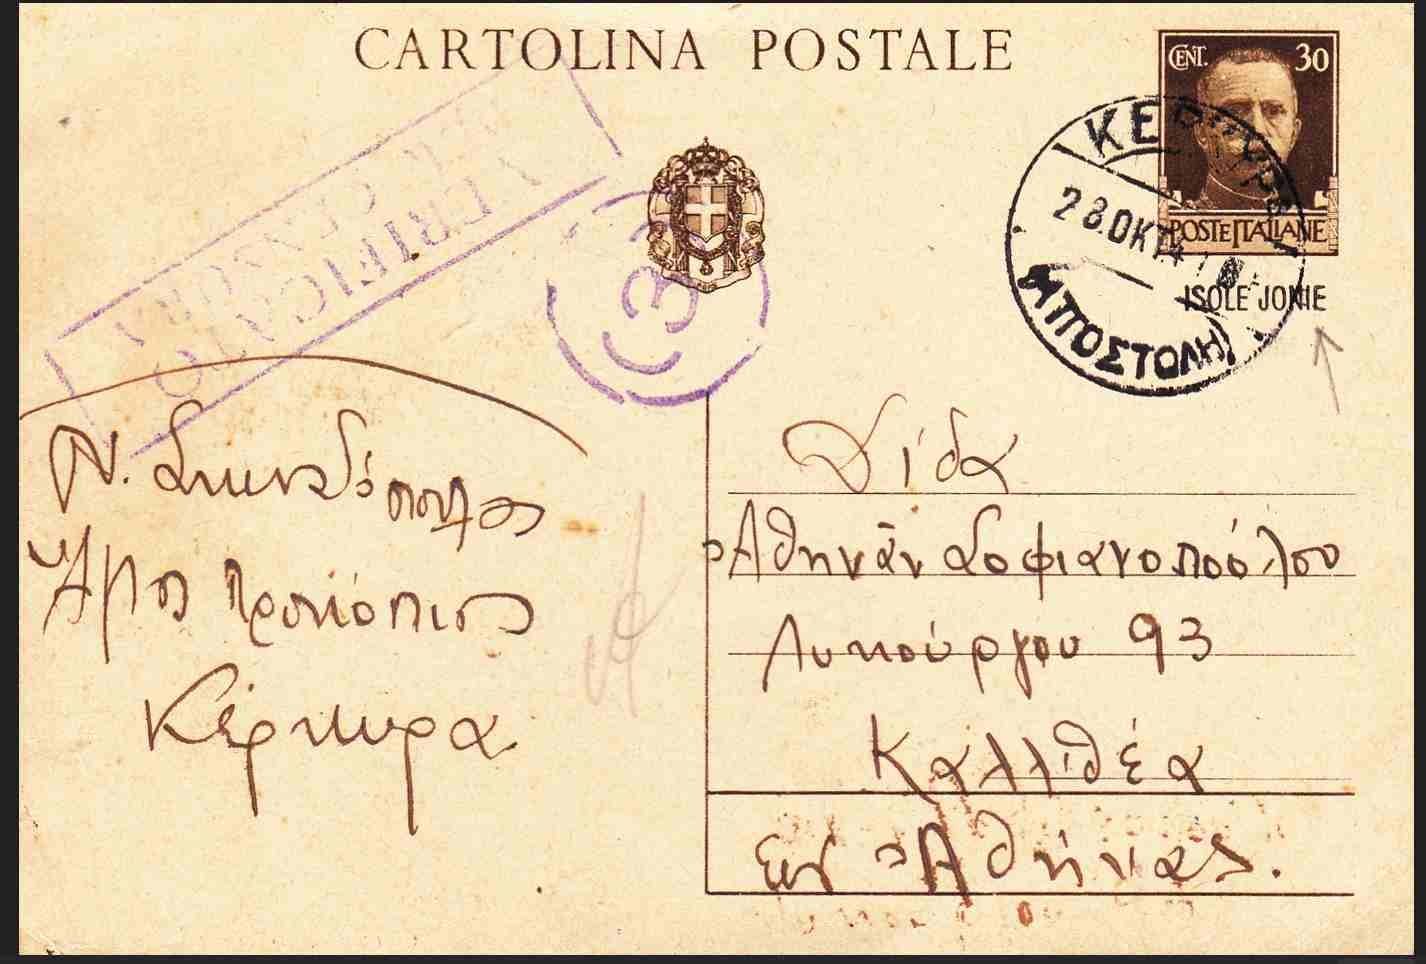 CARTOLINA POSTALE
CENT. 30
POSTE ITALIANE
ISOLE JONIE
ΚΕΡΚΥΡΑ
28.ΟΚΤ.4
ΑΠΟΣΤΟΛΗ
VERIFICATO
PER CENSURA
(3)
Κέρκυρα
Δίδα
Ἀθηνᾶν Σοφιανοπούλου
Λυκούργου 93
Καλλιθέα
εἰς Ἀθήνας.